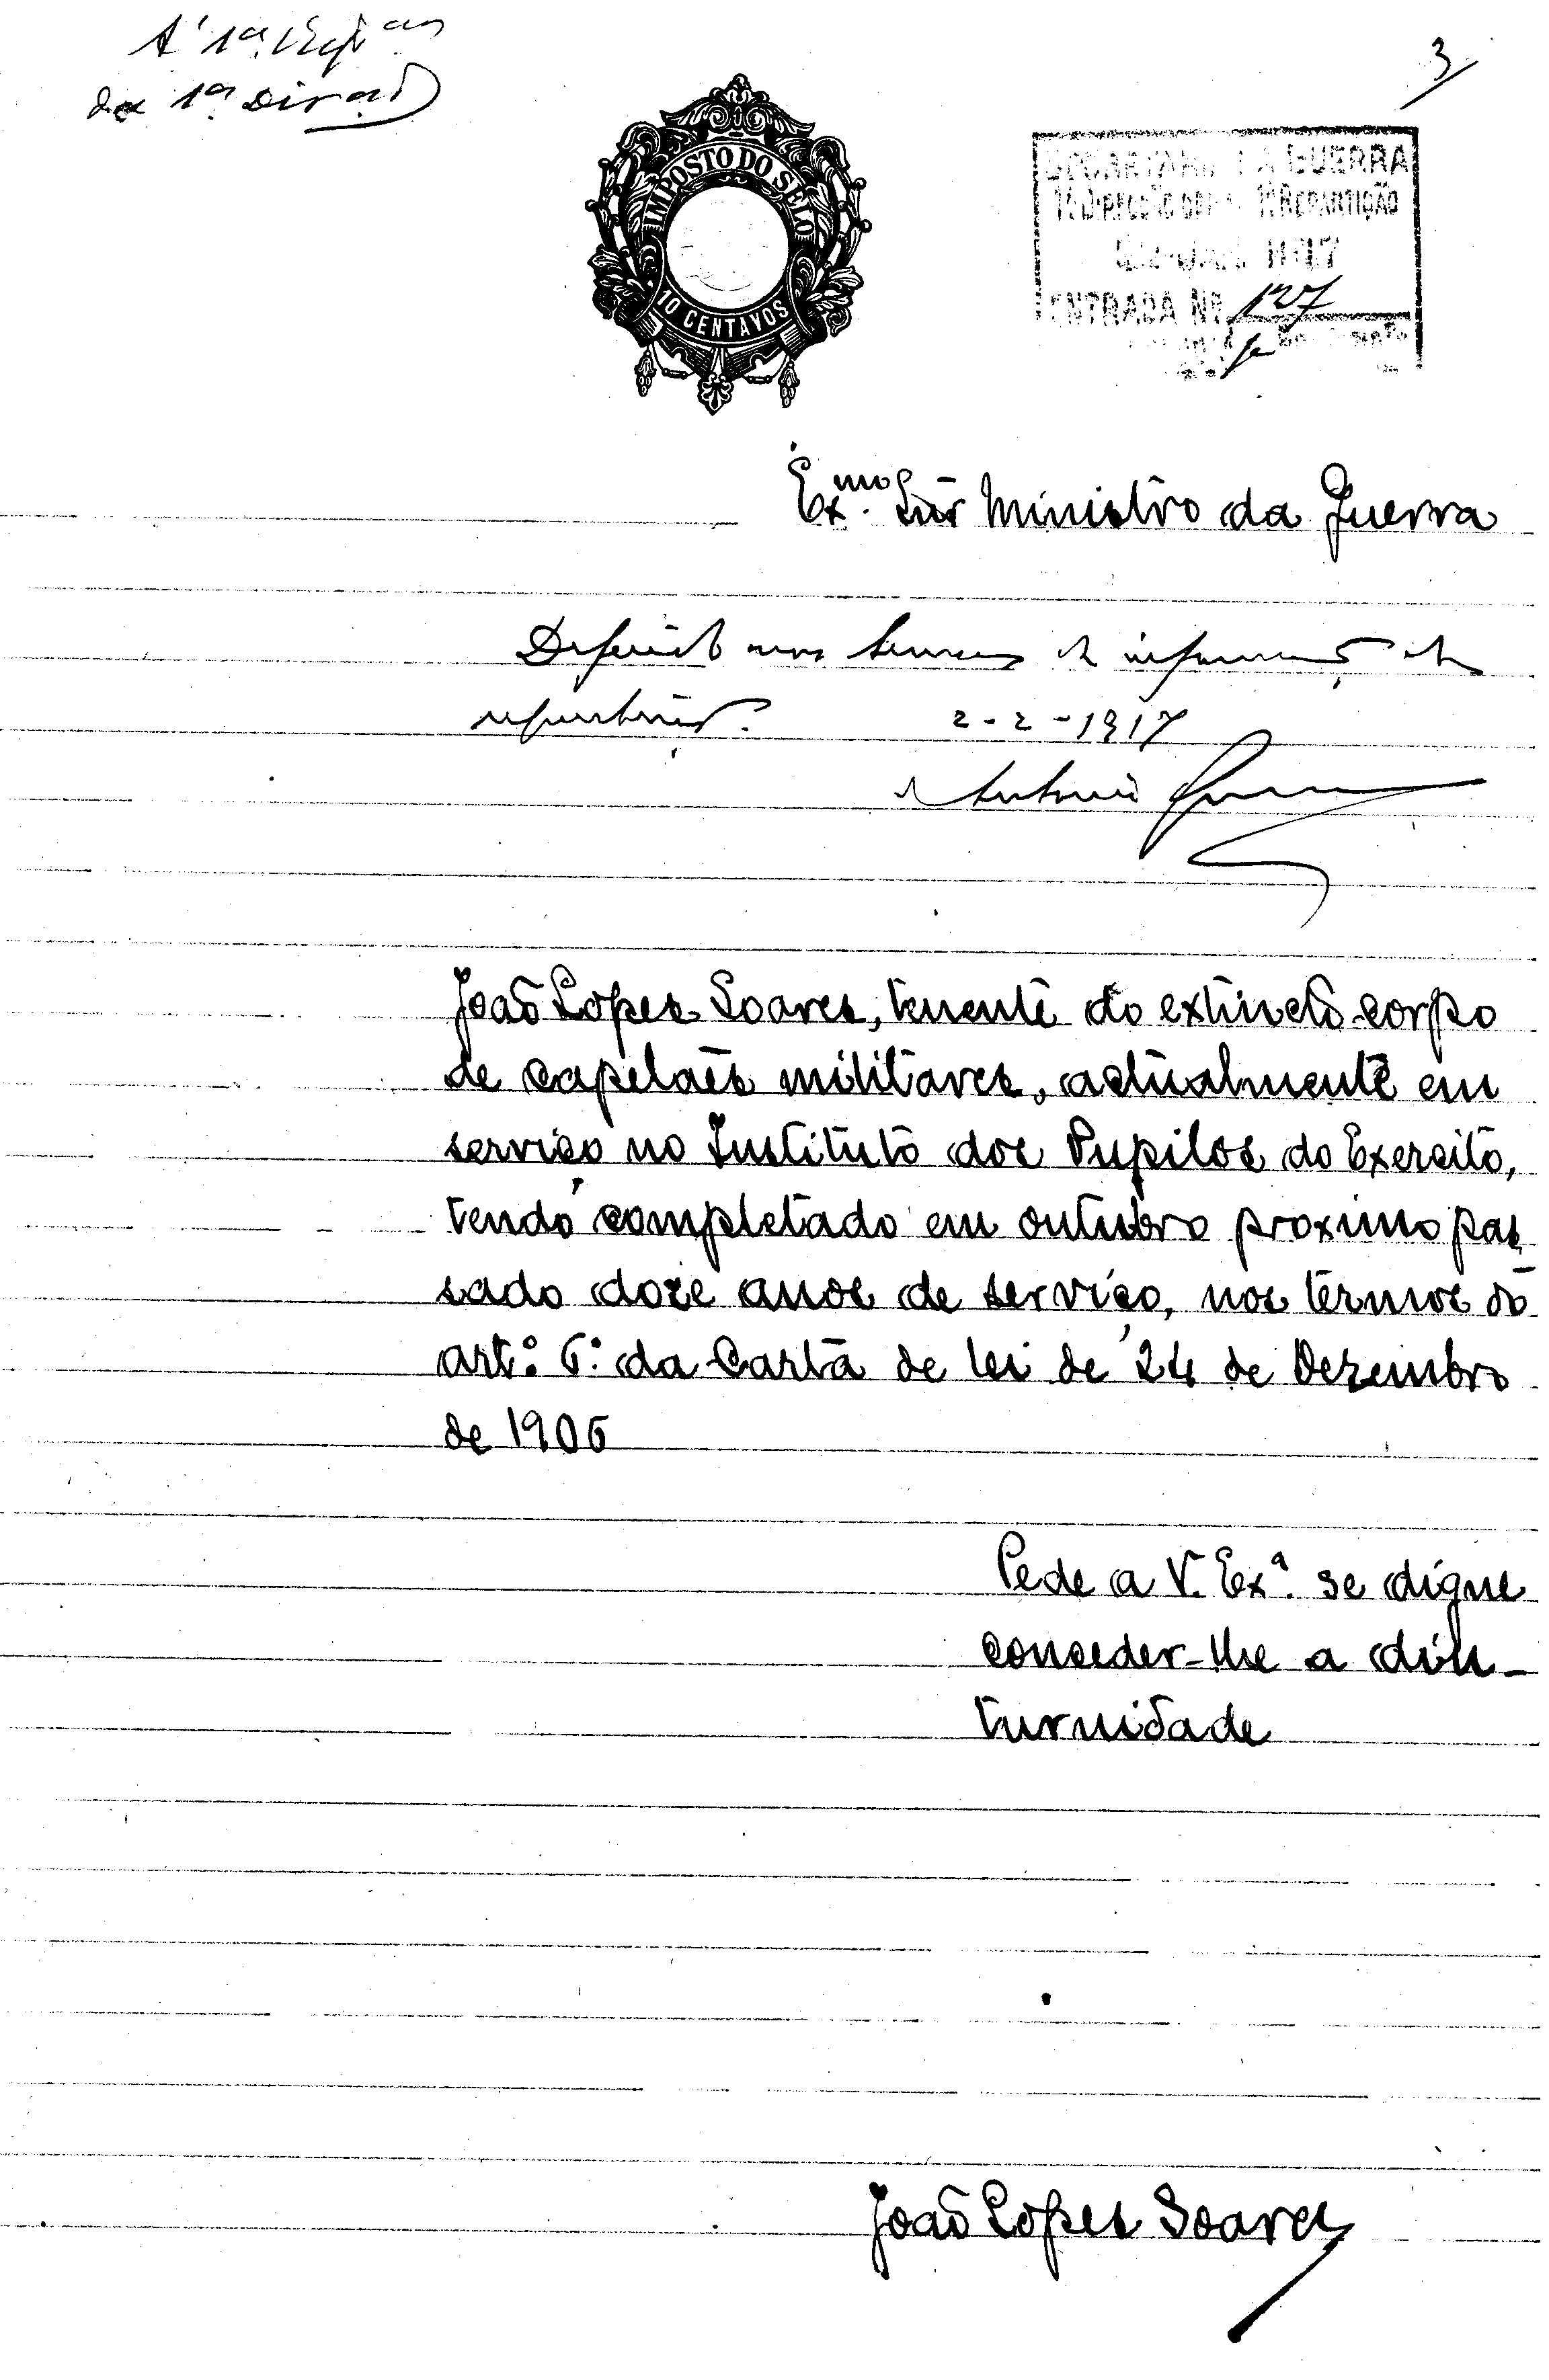 Á 1ª Repᵃᵐ
da 1ª Dirᵃᵒ
3
IMPOSTO DO SELO
10 CENTAVOS
SECRETARIA DA GUERRA
1ª Direcção 1ª REPARTIÇÃO
1917
ENTRADA Nº 127
Exᵐᵒ. Snr Ministro da Guerra
Deferido nos termos da informação da
repartição. 2-2-1917
João Lopes Soares, tenente do extincto corpo
de capelães militares, actualmente em
serviço no Instituto dos Pupilos do Exercito,
tendo completado em outubro proximo pas
sado doze anos de serviço, nos termos do
art.º 6.º da Carta de lei de 24 de Dezembro
de 1906
Pede a V. Exª. se digne
conceder-lhe a diu-
turnidade
João Lopes Soares